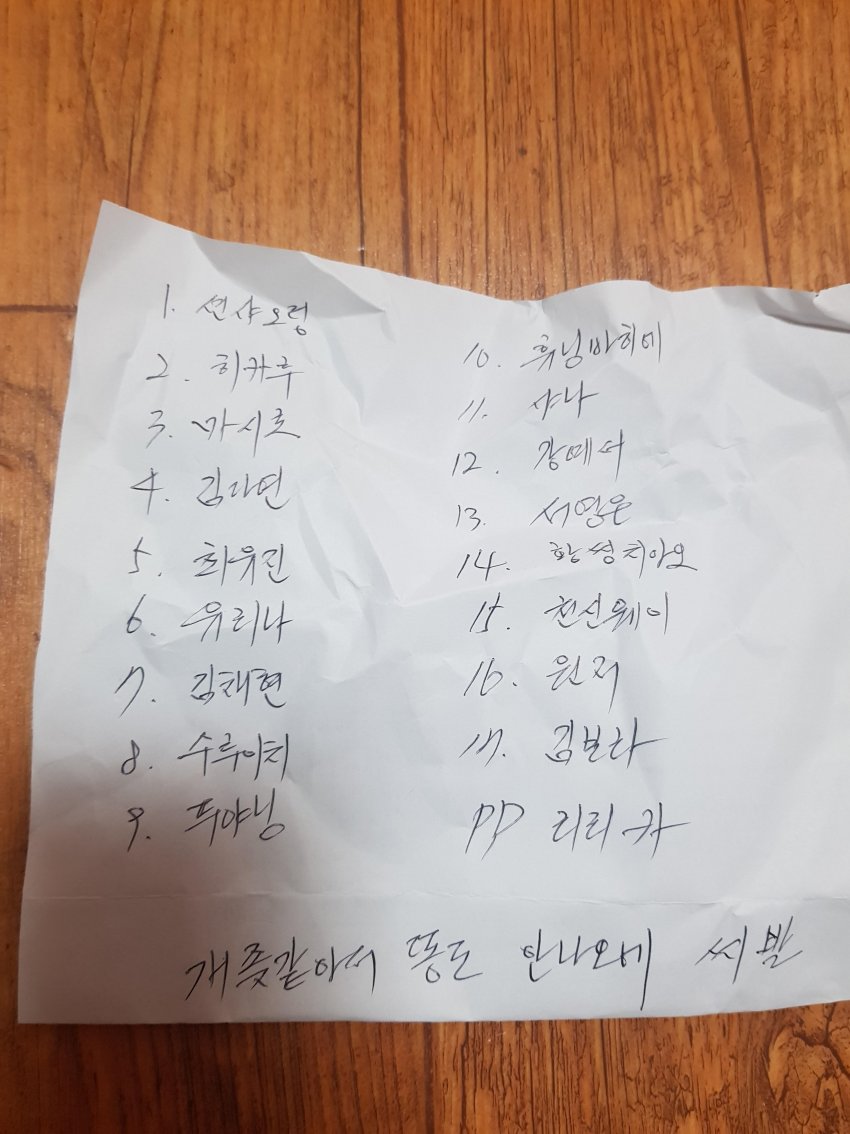 1. 션샤오팅
2. 히카루
3. 마시로
4. 김다연
5. 최유진
6. 유리나
7. 김채현
8. 수루이치
9. 푸야닝
10. 휴닝바히에
11. 샤나
12. 강예서
13. 서영은
14. 황씽치아오
15. 천신웨이
16. 원저
17. 김보라
PP 리리카
개좆같아서 똥도 안나오네 씨빨